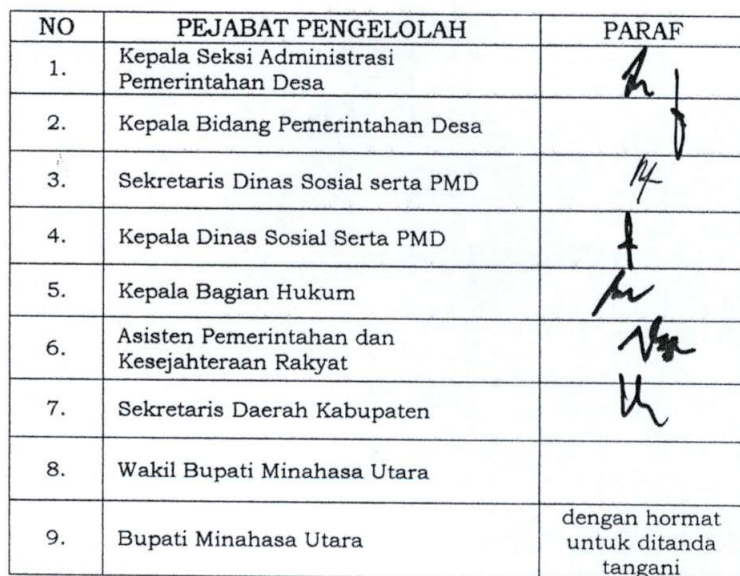 NO PEJABAT PENGELOLAH PARAF
1. Kepala Seksi Administrasi
Pemerintahan Desa
2. Kepala Bidang Pemerintahan Desa
3. Sekretaris Dinas Sosial serta PMD
4. Kepala Dinas Sosial Serta PMD
5. Kepala Bagian Hukum
6. Asisten Pemerintahan dan
Kesejahteraan Rakyat
7. Sekretaris Daerah Kabupaten
8. Wakil Bupati Minahasa Utara
9. Bupati Minahasa Utara
dengan hormat
untuk ditanda
tangani